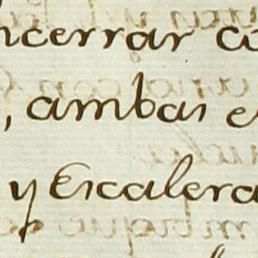 ncerrar co
, ambas e
y Escalera